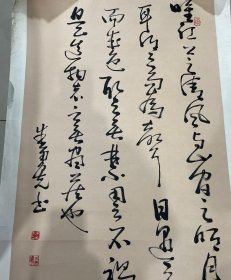 唯江上之清风与山间之明月
耳得之而为声目遇之
而成色取之无禁用之不竭
是造物者之无尽藏也